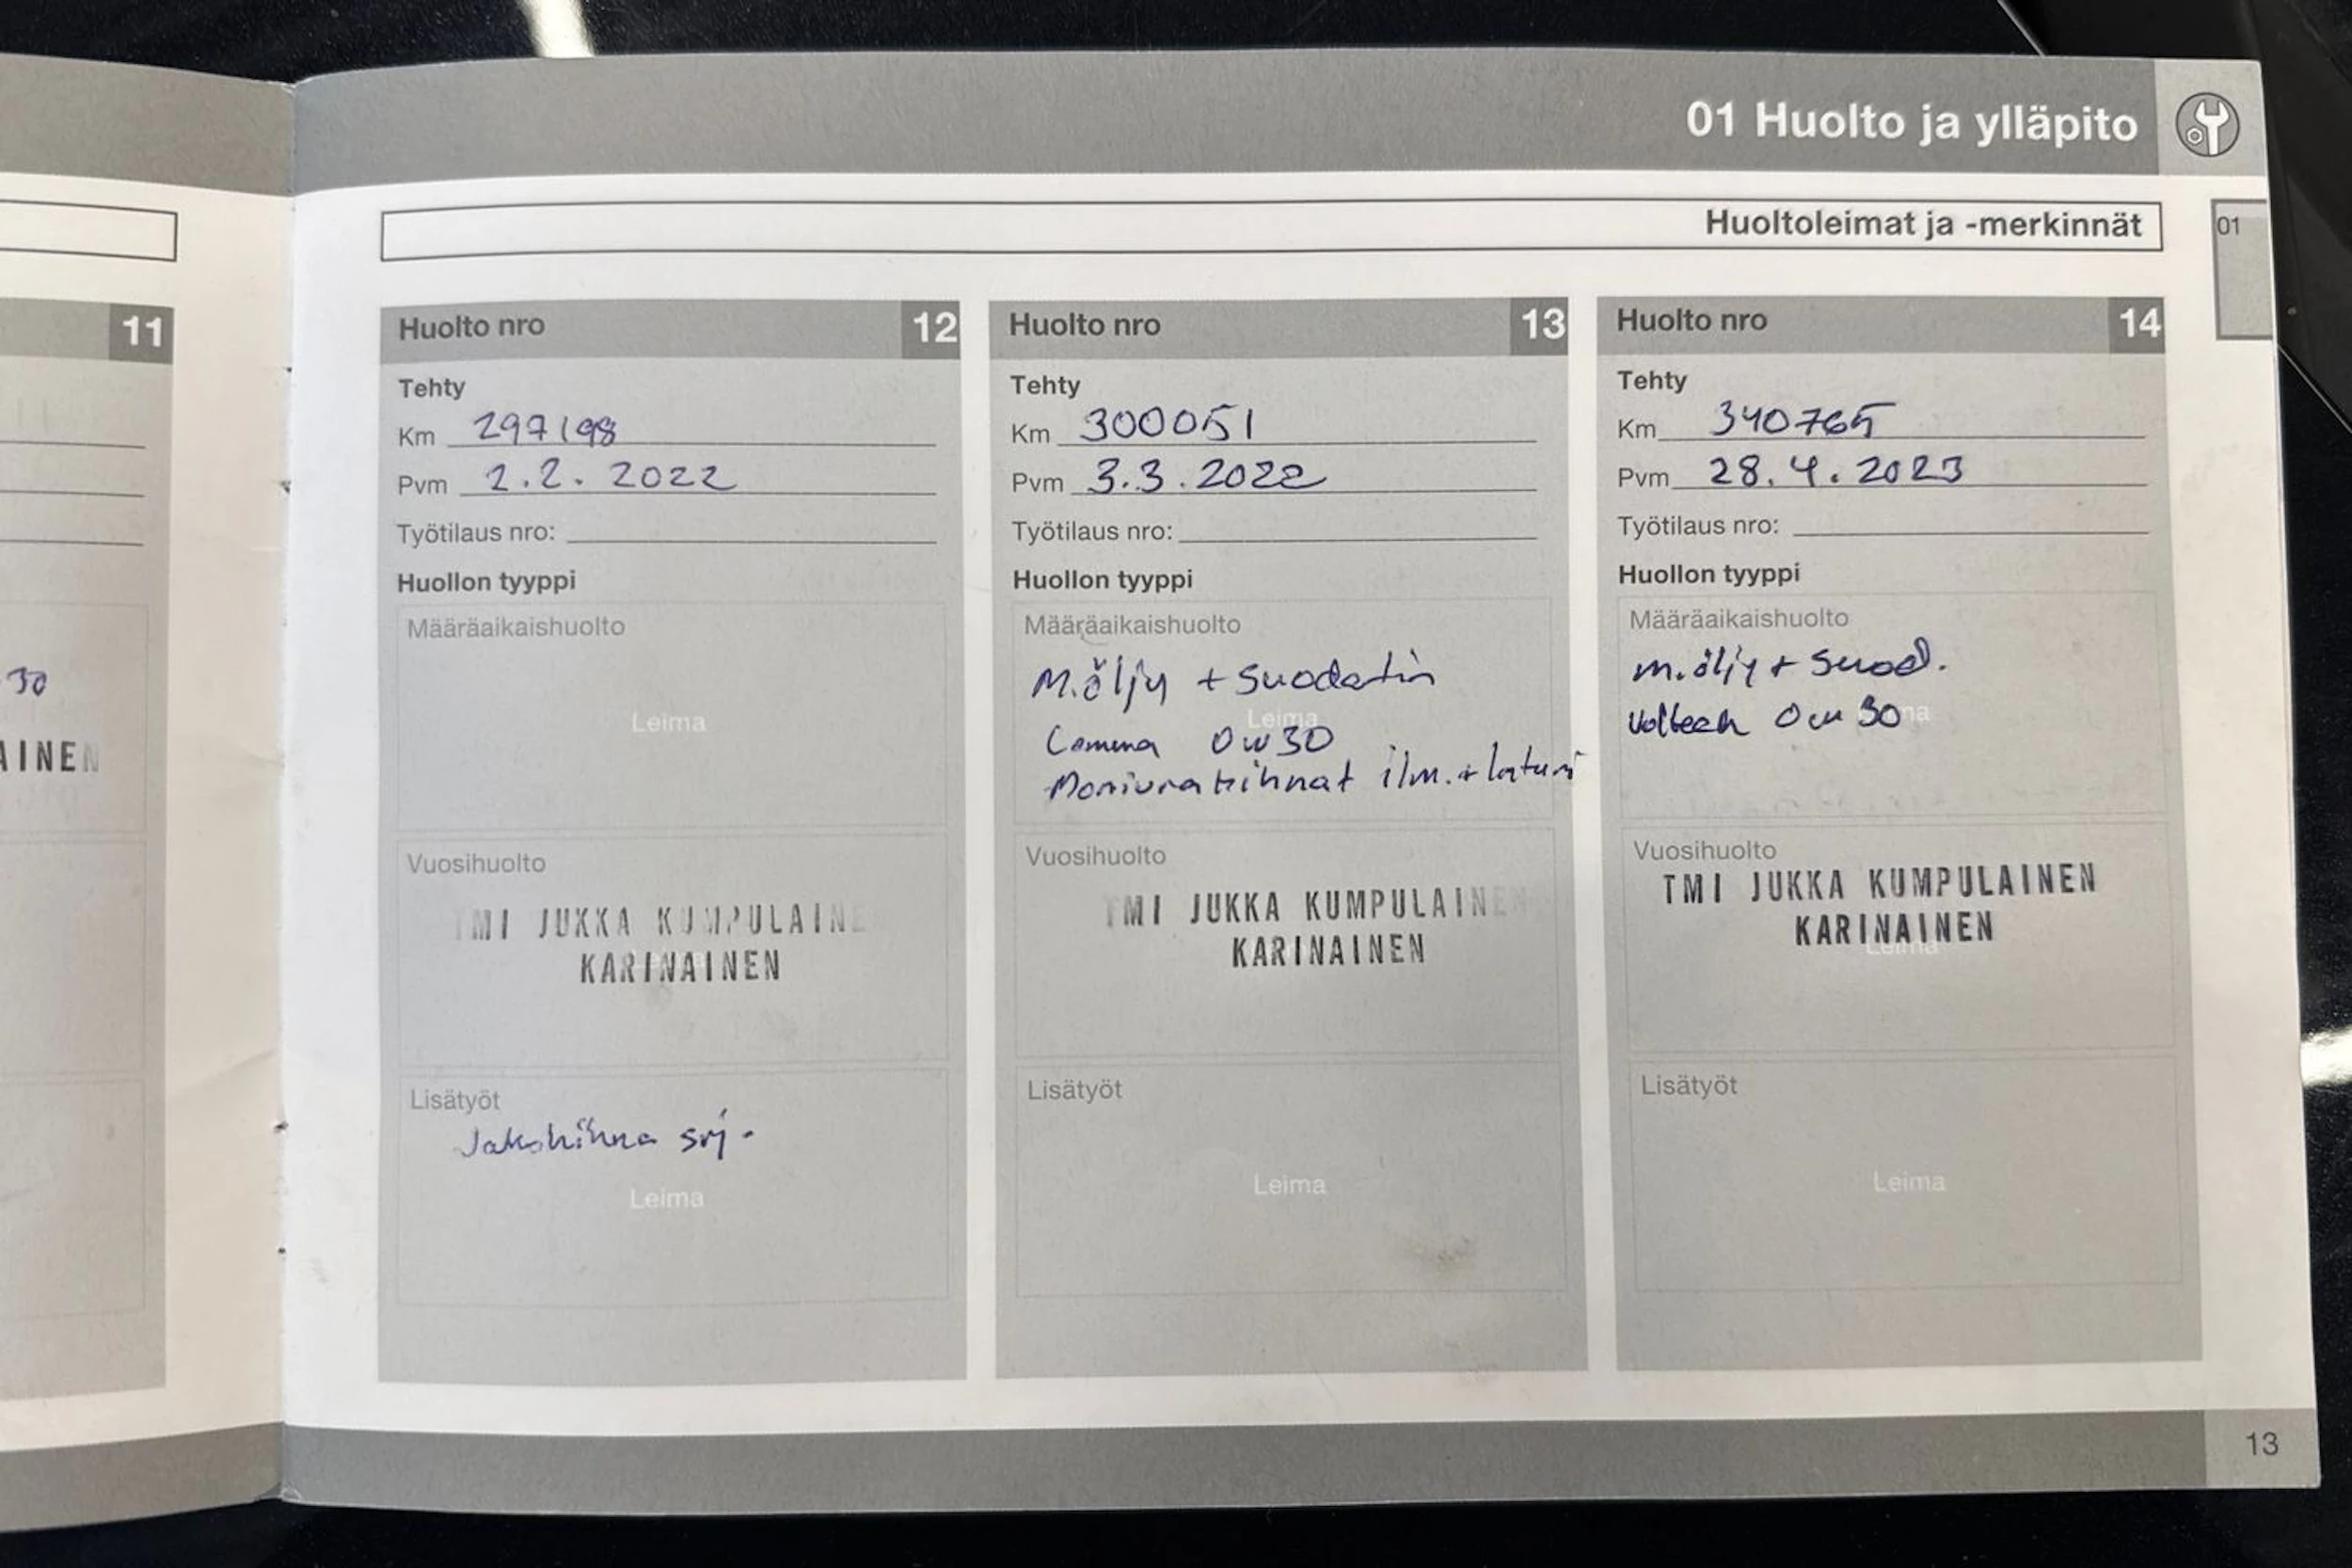 01 Huolto ja ylläpito
Huoltoleimat ja -merkinnät
01
11
30
AINEN
Huolto nro 12
Tehty
Km 297198
Pvm 2.2.2022
Työtilaus nro:
Huollon tyyppi
Määräaikaishuolto
Leima
Vuosihuolto
TMI JUKKA KUMPULAINE
KARINAINEN
Lisätyöt
Jakohihna srj.
Leima
Huolto nro 13
Tehty
Km 300051
Pvm 3.3.2022
Työtilaus nro:
Huollon tyyppi
Määräaikaishuolto
M.öljy + suodatin
Leima
Comma 0w30
Moniurahihnat ilm.+laturi
Vuosihuolto
TMI JUKKA KUMPULAINEN
KARINAINEN
Lisätyöt
Leima
Huolto nro 14
Tehty
Km 340765
Pvm 28.4.2023
Työtilaus nro:
Huollon tyyppi
Määräaikaishuolto
m.öljy + suod.
0w30
Vuosihuolto
TMI JUKKA KUMPULAINEN
KARINAINEN
Leima
Lisätyöt
Leima
13